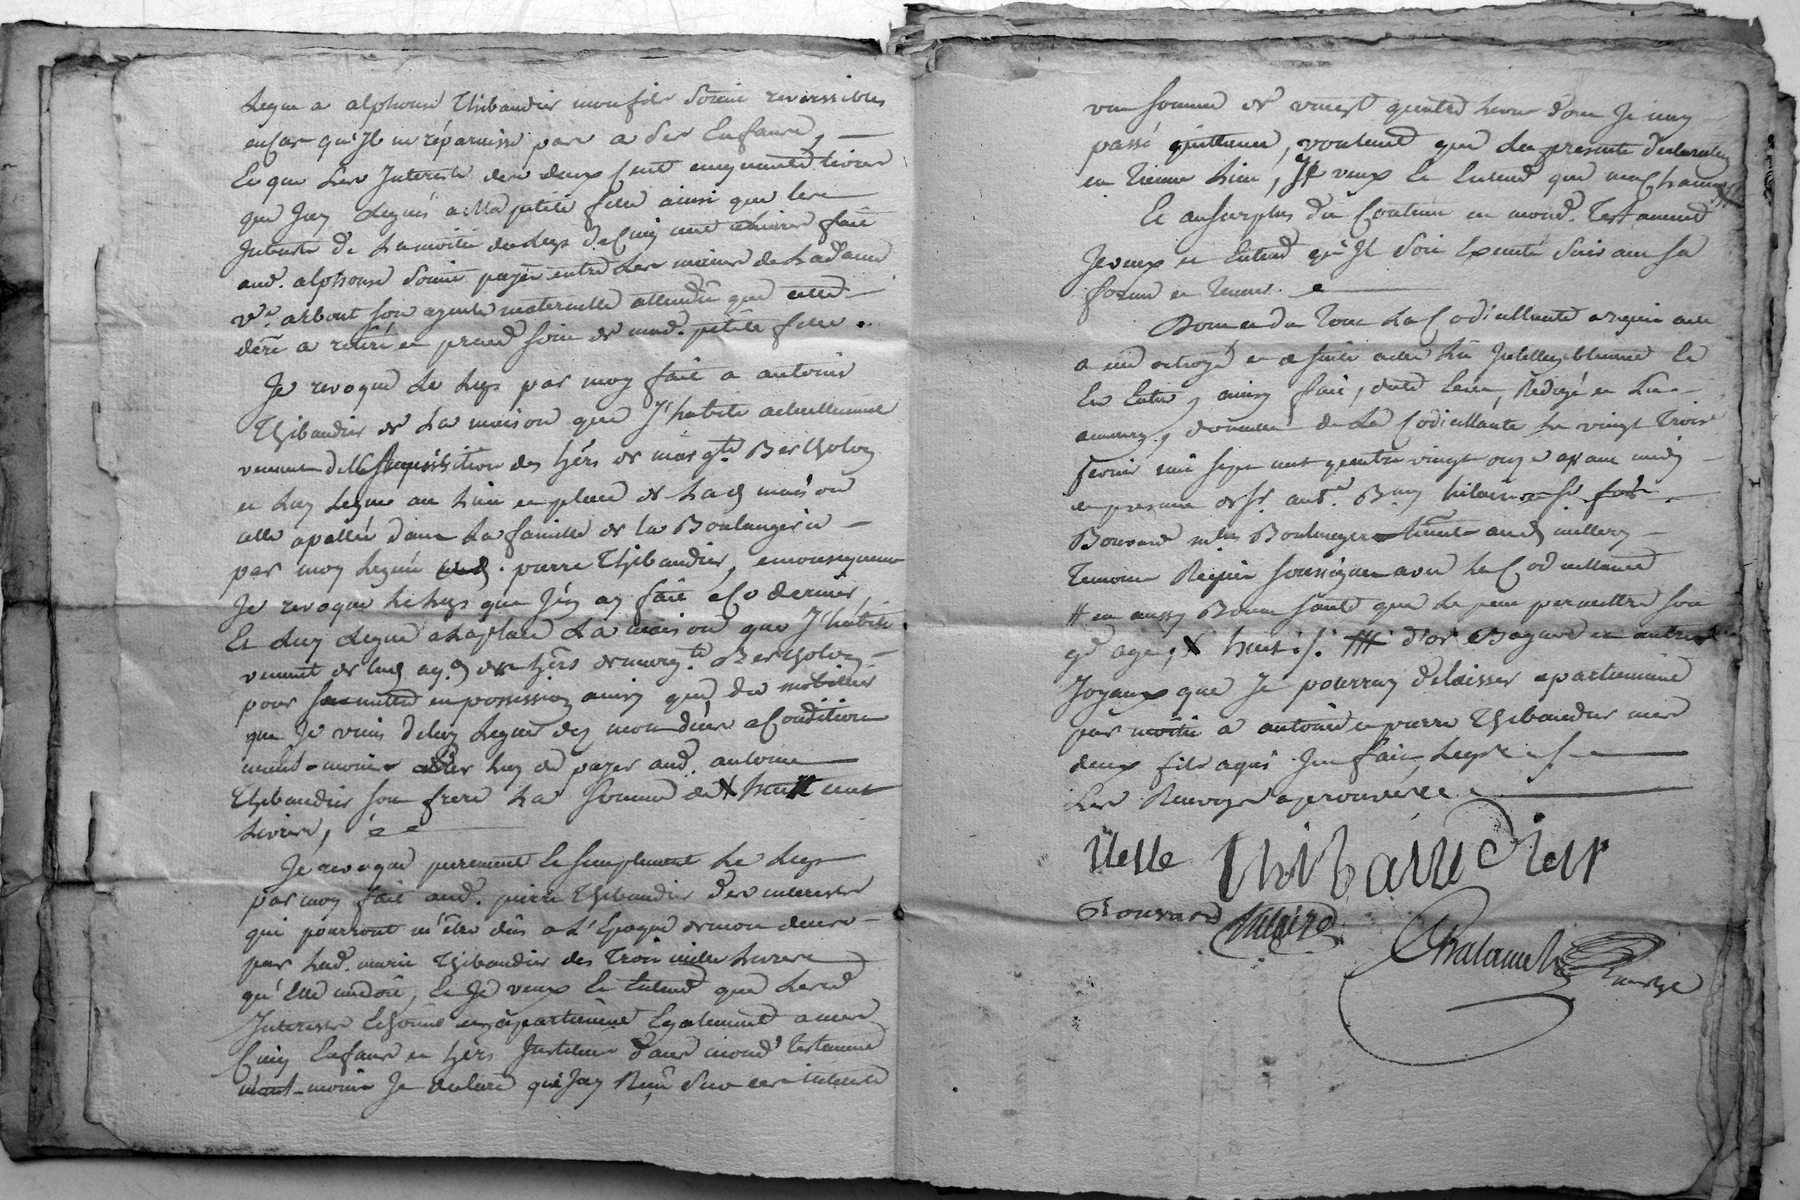 Legue a alphonse Thibaudier mon fils soint reversibles
en cas qu'Il ne réparaisse pas a ses Enfants, —
Et que Les Interests des deux Cent cinquante livres
que Jay Legués a Ma petite fille ainsi que les
Interests de La moitié du Legs de Cinq cent livres fait
aud. alphonse soint payés entre Les mains de La dame
v.e arbout son ayeule maternelle attendu que celle
a retiré et prend soin de mad. petite fille.
Je revoque Le Legs par moy fait a antoine
Thibaudier de La maison que J'habite actuellement
venant de l'acquisition des hérs de marg.te Bertholoz
et Luy Legue au Lieu et place de Lad. maison
celle apellée dans La famille de la Boulangerie —
par moy Leguée aud. pierre Thibaudier,
Je revoque Le Legs que J'en ay fait a Ce dernier,
Et Luy Legue a La place La maison que J'habite
venant de lad. aq.on des hérs de marg.te Bertholoz —
pour sa mettre en possession ainsy que du mobilier
que Je viens de luy Leguer des mon décès a Condition
neant-moins par Luy de payer aud. antoine
Thibaudier son frere La somme de X huit cent
Livres, —
Je revoque purement Et simplement Le Legs
par moy fait aud. pierre Thibaudier des interests
qui pourront m'être dûs a L'Epoque de mon deces —
par Lad. marie Thibaudier des Trois mille Livres
qu'Elle me doit, Et Je veux Et Entend que Lesd.
Interests Echoint et apartienne Egalement a mes
Cinq Enfans et hérs Institués dans mond. Testament
neant-moins Je declare que Jay Reçu sur ces interests
une somme de vingt quatre Livres dont Je n'ay
passé quittance, voulant que La presente declaration
en Tienne Lieu, Je veux Et Entend que
Et au surplus du Contenu en mond. Testament
Je veux et Entend qu'Il soit Executé suivant sa
forme et Teneur. —
Dont et du Tout La Codicillante a requis acte
a elle octroyé et de suite a elle Lu Intelligiblement Et
En Entier, ainsy fait, dicté Leu, Rédigé et Lu —
a millery, domicile de La Codicillante Le vingt Trois
fevrier mil sept cent quatre vingt onze apres midy
en presence de Sr. ant.e B.my hilaire et Sr. fois
Bouvard m.tre Boulanger aud. millery —
Temoins Requis soussignés avec La Codicillante
# en aussy Bonne santé que Le peut permettre son
gd age, X huit ./. ## d'or Bagues et autres
Joyaux que Je pourray delaisser apartienne
par moitié a antoine et pierre Thibaudier mes
deux fils a qui J'en fais Legs ./. —
Les Renvoys aprouvés —
Thibaudier
Bouvard hilaire
Chalamel